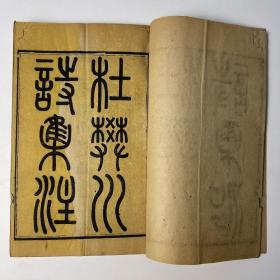 杜樊川
詩集注